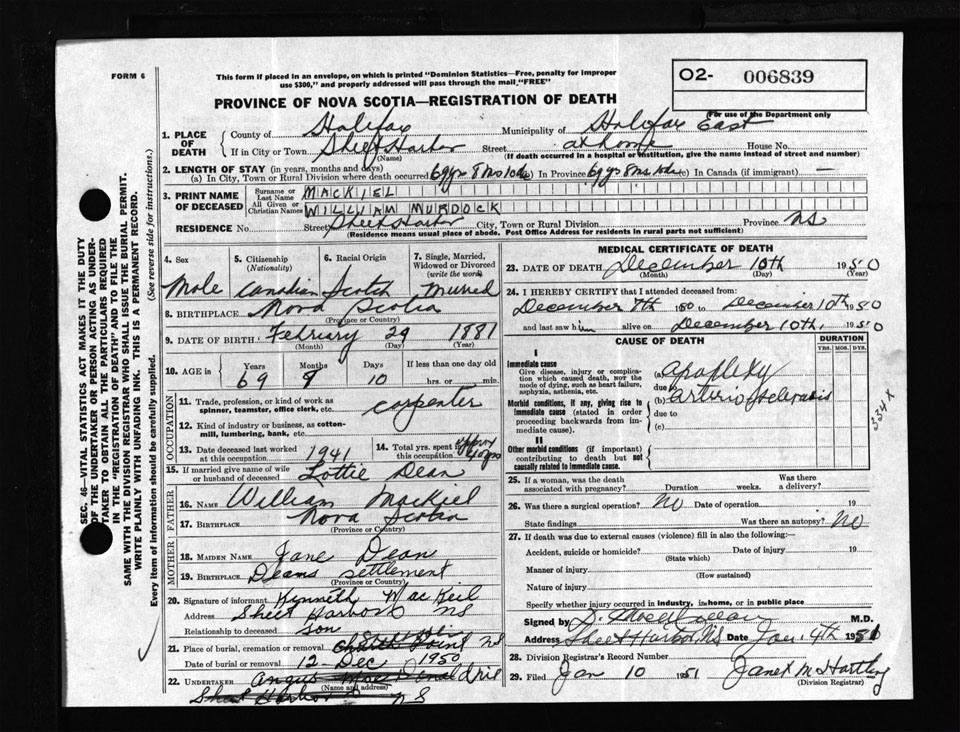 FORM 6
This form if placed in an envelope, on which is printed "Dominion Statistics—Free, penalty for improper
use $300," and properly addressed will pass through the mail "FREE"
O2- 006839
For use of the Department only
PROVINCE OF NOVA SCOTIA—REGISTRATION OF DEATH
1. PLACE OF DEATH
County of Halifax Municipality of Halifax East
If in City or Town Sheet Harbor Street at home House No.
(Name) (If death occurred in a hospital or institution, give the name instead of street and number)
2. LENGTH OF STAY (in years, months and days)
(a) In City, Town or Rural Division where death occurred 69 yrs 8 ms 10 ds (b) In Province 69 yrs 8 ms 10 ds (c) In Canada (if immigrant) —
3. PRINT NAME OF DECEASED
Surname or Last Name MACKIEL
All Given or Christian Names WILLIAM MURDOCK
RESIDENCE No. Street Sheet Harbor City, Town or Rural Division Province NS
(Residence means usual place of abode. Post Office Address for residents in rural parts not sufficient)
4. Sex
Male
5. Citizenship (Nationality)
Canadian
6. Racial Origin
Scotch
7. Single, Married, Widowed or Divorced (write the word)
Married
8. BIRTHPLACE Nova Scotia
(Province or Country)
9. DATE OF BIRTH February 29 1881
(Month) (Day) (Year)
10. AGE in Years Months Days If less than one day old
69 9 10 hrs. or min.
OCCUPATION
11. Trade, profession, or kind of work as
spinner, teamster, office clerk, etc. carpenter
12. Kind of industry or business, as cotton-
mill, lumbering, bank, etc.
13. Date deceased last worked at this occupation 1941
14. Total yrs. spent in this occupation approx
15. If married give name of wife or husband of deceased Lottie Dean
FATHER
16. NAME William Mackiel
17. BIRTHPLACE Nova Scotia
(Province or Country)
MOTHER
18. MAIDEN NAME Jane Dean
19. BIRTHPLACE Deans settlement
(Province or Country)
20. Signature of informant Kenneth MacKeil
Address Sheet Harbor NS
Relationship to deceased son
21. Place of burial, cremation or removal Church Point NS
Date of burial or removal 12 - Dec 1950
22. UNDERTAKER Angus
(Name and address)
Sheet Harbor NS
MEDICAL CERTIFICATE OF DEATH
23. DATE OF DEATH December 10th 1950
(Month) (Day) (Year)
24. I HEREBY CERTIFY that I attended deceased from:
December 7th 1950 to December 10th 1950
and last saw him alive on December 10th, 1950
CAUSE OF DEATH
DURATION
YRS. MOS. DYS.
I
Immediate cause
Give disease, injury or complica-
tion which caused death, not the
mode of dying, such as heart failure,
asphyxia, asthenia, etc.
(a) Apoplexy
due to
Morbid conditions, if any, giving rise to
immediate cause (stated in order
proceeding backwards from im-
mediate cause).
(b) arteriosclerosis
due to
(c)
334 X
II
Other morbid conditions (if important)
contributing to death but not
causally related to immediate cause.
25. If a woman, was the death
associated with pregnancy? Duration weeks. Was there a delivery?
26. Was there a surgical operation? No Date of operation 19
State findings Was there an autopsy? No
27. If death was due to external causes (violence) fill in also the following:—
Accident, suicide or homicide? Date of injury 19
(State which)
Manner of injury
(How sustained)
Nature of injury
Specify whether injury occurred in industry, in home, or in public place
Signed by M.D.
Address Sheet Harbor, NS Date Jan. 4th 1951
28. Division Registrar's Record Number
29. Filed Jan 10 1951 Janet M Hartling
(Division Registrar)
SEC. 46—VITAL STATISTICS ACT MAKES IT THE DUTY
OF THE UNDERTAKER OR PERSON ACTING AS UNDER-
TAKER TO OBTAIN ALL THE PARTICULARS REQUIRED
IN THE "REGISTRATION OF DEATH" AND TO FILE THE
SAME WITH THE DIVISION REGISTRAR WHO SHALL ISSUE THE BURIAL PERMIT.
WRITE PLAINLY WITH UNFADING INK. THIS IS A PERMANENT RECORD.
Every item of information should be carefully supplied. (See reverse side for instructions.)